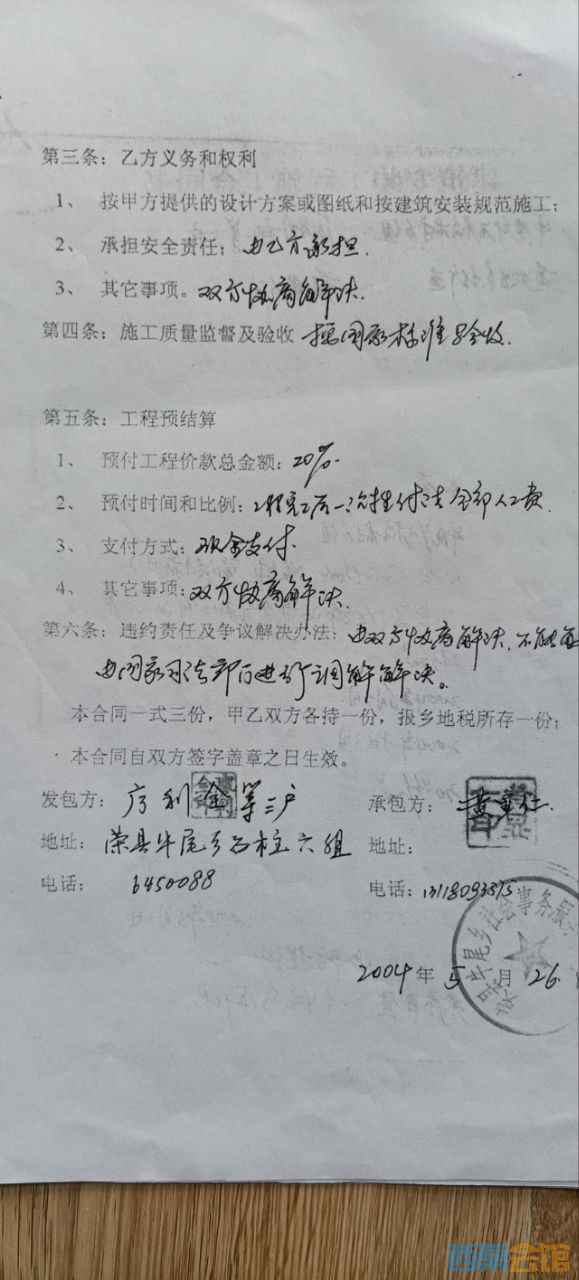 第三条：乙方义务和权利
1、 按甲方提供的设计方案或图纸和按建筑安装规范施工；
2、 承担安全责任：由乙方承担.
3、 其它事项。双方协商解决.
第四条：施工质量监督及验收 按国家标准验收.
第五条：工程预结算
1、 预付工程价款总金额：20%.
2、 预付时间和比例：工程完工后一次性付清全部人工费.
3、 支付方式：现金支付.
4、 其它事项：双方协商解决.
第六条：违约责任及争议解决办法：由双方协商解决.不能
由国家司法部门进行调解解决。
本合同一式三份，甲乙双方各持一份，报乡地税所存一份；
本合同自双方签字盖章之日生效。
发包方： 利金等三户
承包方： 黄 仁.
地址： 荣县牛尾乡石柱六组 地址：
电话： 6450088
电话：
牛尾乡社会事务服
2004年5月26
西策会馆